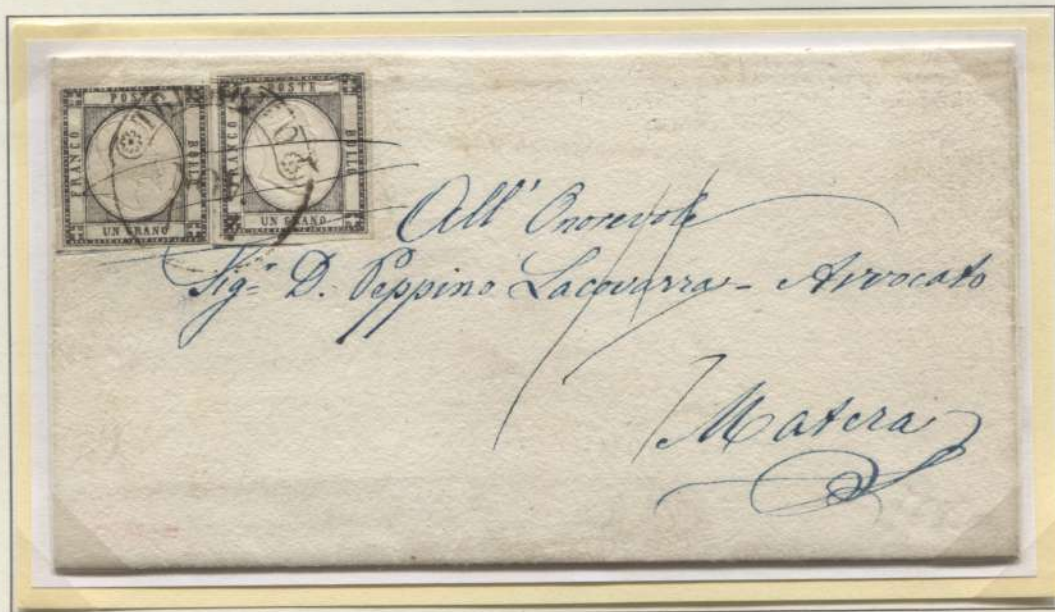 POSTE
FRANCO
BOLLO
UN GRANO
POSTE
FRANCO
BOLLO
UN GRANO
All' Onorevole
Sigr D. Peppino Lacovarra - Avvocato
Matera